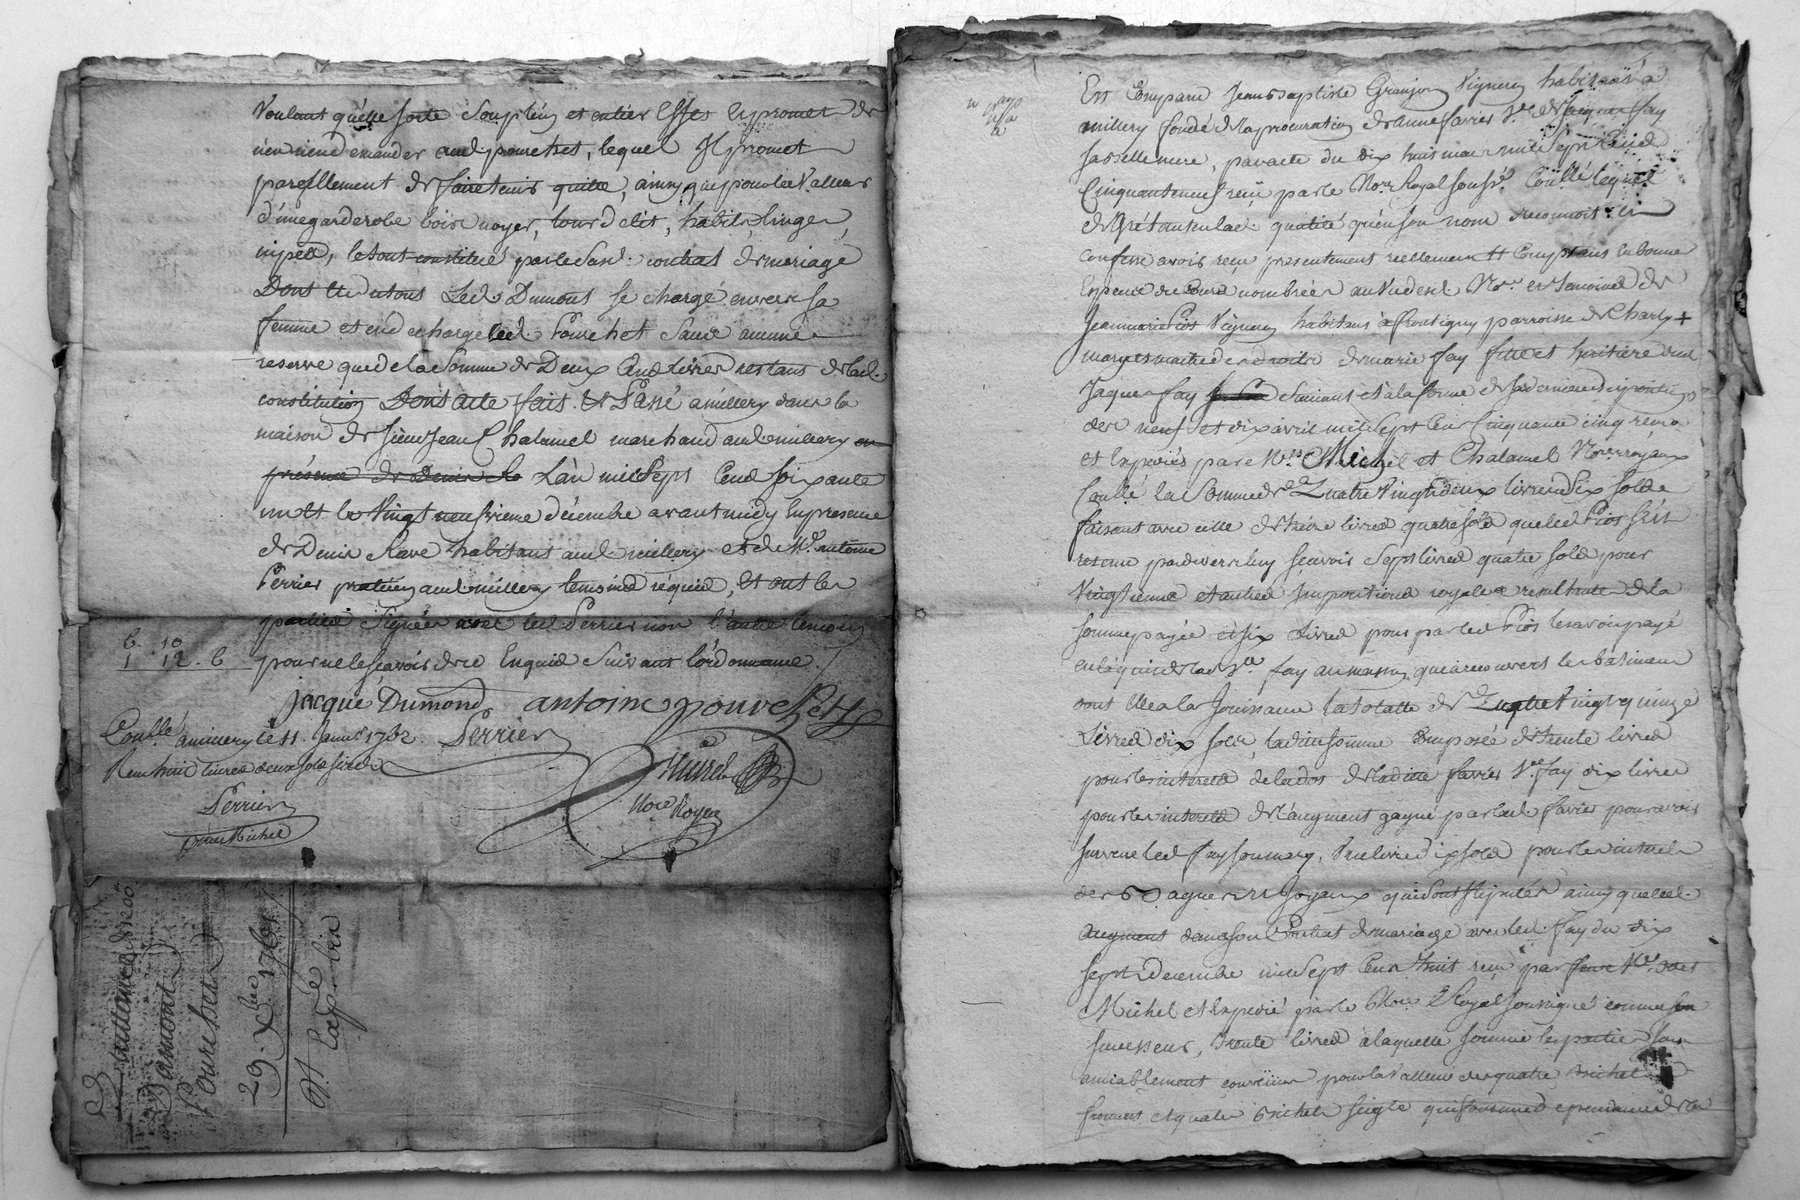 Voulant qu'elle sorte Son plein et entier Effet Et promet de
rien demander aud pourchet, lequel Il promet
pareillement de faire tenir quitte, ainsy que pour les Valleur
d'une garderobe bois noyer, tour de lit, habits, linges,
nipes, le tout constitué par le Susd. contrat de mariage
Dont du tout Led. Dumont se charge envers sa
femme et en decharge led. Pourchet Sans aucune
reserve que de la Somme de Deux Cent Livres restant de lad.
constitution Dont acte fait & Passé a millery dans la
maison de sieur Jean Chalamel marchand aud. millery en
présence de Denis La L'an mil Sept Cent soixante
un et le Vingt neufvieme décembre avant midy En presence
de Denis Rave habitant aud. millery et de Me. antoine
Perrier praticien aud. millery temoins requis, Et ont les
parties Signées avec led. Perrier non l'autre temoin
6. 10
1. 12. 6 pour ne le sçavoir de ce Enquis Suivant l'ordonnance.
jacque Dumond antoine pourchet
Conllé a millery le 11. Janvr. 1762. Perrier
Reçu huit livres deux sols six d.
Michel
Perrier Nore. Royal
pour Michel
Quittance de 1200
Damont
Pourchet
29. Xbre 1761
Et Expedié
Est Comparu Jean Baptiste Granjon Vigneron habitant a
millery fondé de la procuration de anne favier Ve. de Jacques fay
sa belle mere, par acte du dix huit mai mil Sept Cent
Cinquante neuf reçu par le Nore. Royal Soussné. Conllé lequel
de Gré tant en lad. qualité qu'en son nom reconnoit et
Confesse avoir reçu presentement reellement Et Comptant En bonnes
Especes de Cours nombrées au Vu desd. Nore. et temoins de
Jean marie Pios Vigneron habitant a frontigny parroisse de Charly +
mary et maitre des droits de marie fay fille et heritiere dud.
Jaques fay Suivant et a la forme de
des neuf et dix avril mil Sept Cent Cinquante cinq reçu
et Expediés par Mes. Michel et Chalamel Nores. royaux
Conllé la Somme de Quatre Vingt deux livres Six sols
faisant avec celle de treize livres quatre sols que led. Pios s'est
retenu pardevers luy sçavoir Sept livres quatre sols pour
Vingtieme et autres Impositions royales resultantes de la
somme payée et six Livres pour par led. Pios les avoir payé
en l'acquit de lad. Ve. fay au masson qui a recouvert les batimens
dont elle a la Jouissance la totalle de Quatre Vingt quinze
Livres dix sols, ladite somme Composée de trente livres
pour les interets de la dot de ladite favier Ve. fay dix livres
pour les interets de l'augment gagné par lad. favier pour avoir
survecu led. fay son mary, Une livre dix sols pour les interets
des Bagues et Joyaux qui sont stipulés ainsy que led.
augment dans son Contrat de mariage avec led. fay du dix
sept Decembre mil Sept Cent huit reçu par feu Me.
Michel et Expedié par le Nore. Royal soussigné comme son
successeur, trente livres a laquelle somme les parties sont
amiablement convenues pour la Valleur des quatre Bichets
froment et quatre bichets seigle qui